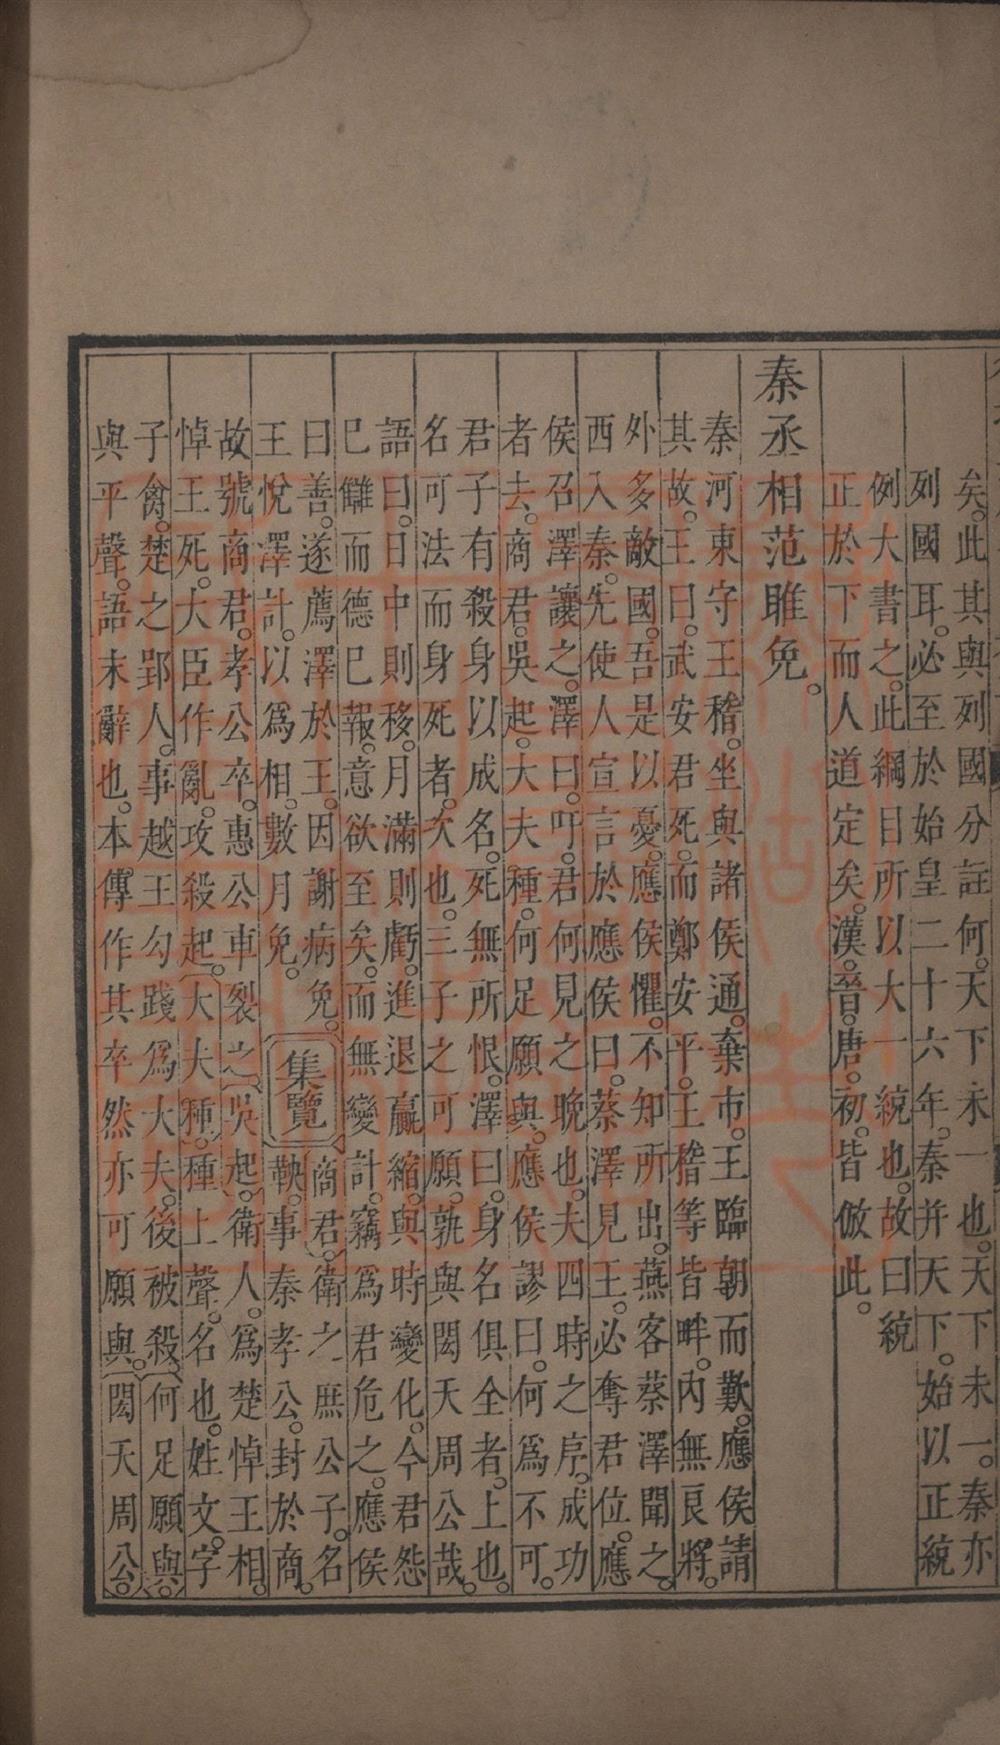 矣。此其與列國分註何。天下未一也。天下未一。秦亦
列國耳。必至於始皇二十六年。秦并天下。始以正統
例大書之。此綱目所以大一統也。故曰統
正於下而人道定矣。漢。晉。唐。初。皆倣此。
秦丞相范雎免。
秦河東守王稽。坐與諸侯通。棄市。王臨朝而歎。應侯請
其故。王曰。武安君死。而鄭安平。王稽等皆畔。內無良將。
外多敵國。吾是以憂。應侯懼。不知所出。燕客蔡澤聞之。
西入秦。先使人宣言於應侯曰。蔡澤見王。必奪君位。應
侯召澤讓之。澤曰。吁。君何見之晚也。夫四時之序。成功
者去。商君。吳起。大夫種。何足願與。應侯謬曰。何爲不可。
君子有殺身以成名。死無所恨。澤曰。身名俱全者。上也。
名可法而身死者。次也。三子之可願。孰與閎夭周公哉。
語曰。日中則移。月滿則虧。進退贏縮。與時變化。今君怨
已讎而德已報。意欲至矣。而無變計。竊爲君危之。應侯
曰善。遂薦澤於王。因謝病免。
王悅澤計。以爲相。數月免。
集覽
商君。衛之庶公子。名
鞅。事秦孝公。封於商。
故號商君。孝公卒。惠公車裂之
吳起。衛人。爲楚悼王相。
悼王死。大臣作亂。攻殺起。
大夫種。種上聲。名也。姓文。字
子禽。楚之郢人。事越王勾踐爲大夫。後被殺
何足願與。
與平聲。語末辭也。本傳作其卒然亦可願與。
閎夭周公。